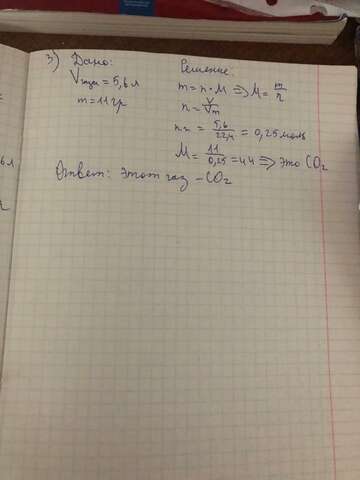 3) Дано:
Vгаза = 5,6 л
m = 11 гр
Решение:
m = n · M ⇒ M = m/n
n = V/Vm
n = 5,6/22,4 = 0,25 моль
M = 11/0,25 = 44 ⇒ это CO₂
Ответ: этот газ – CO₂